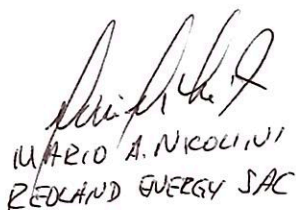 MARIO A. NICOLINI
REDLAND ENERGY SAC